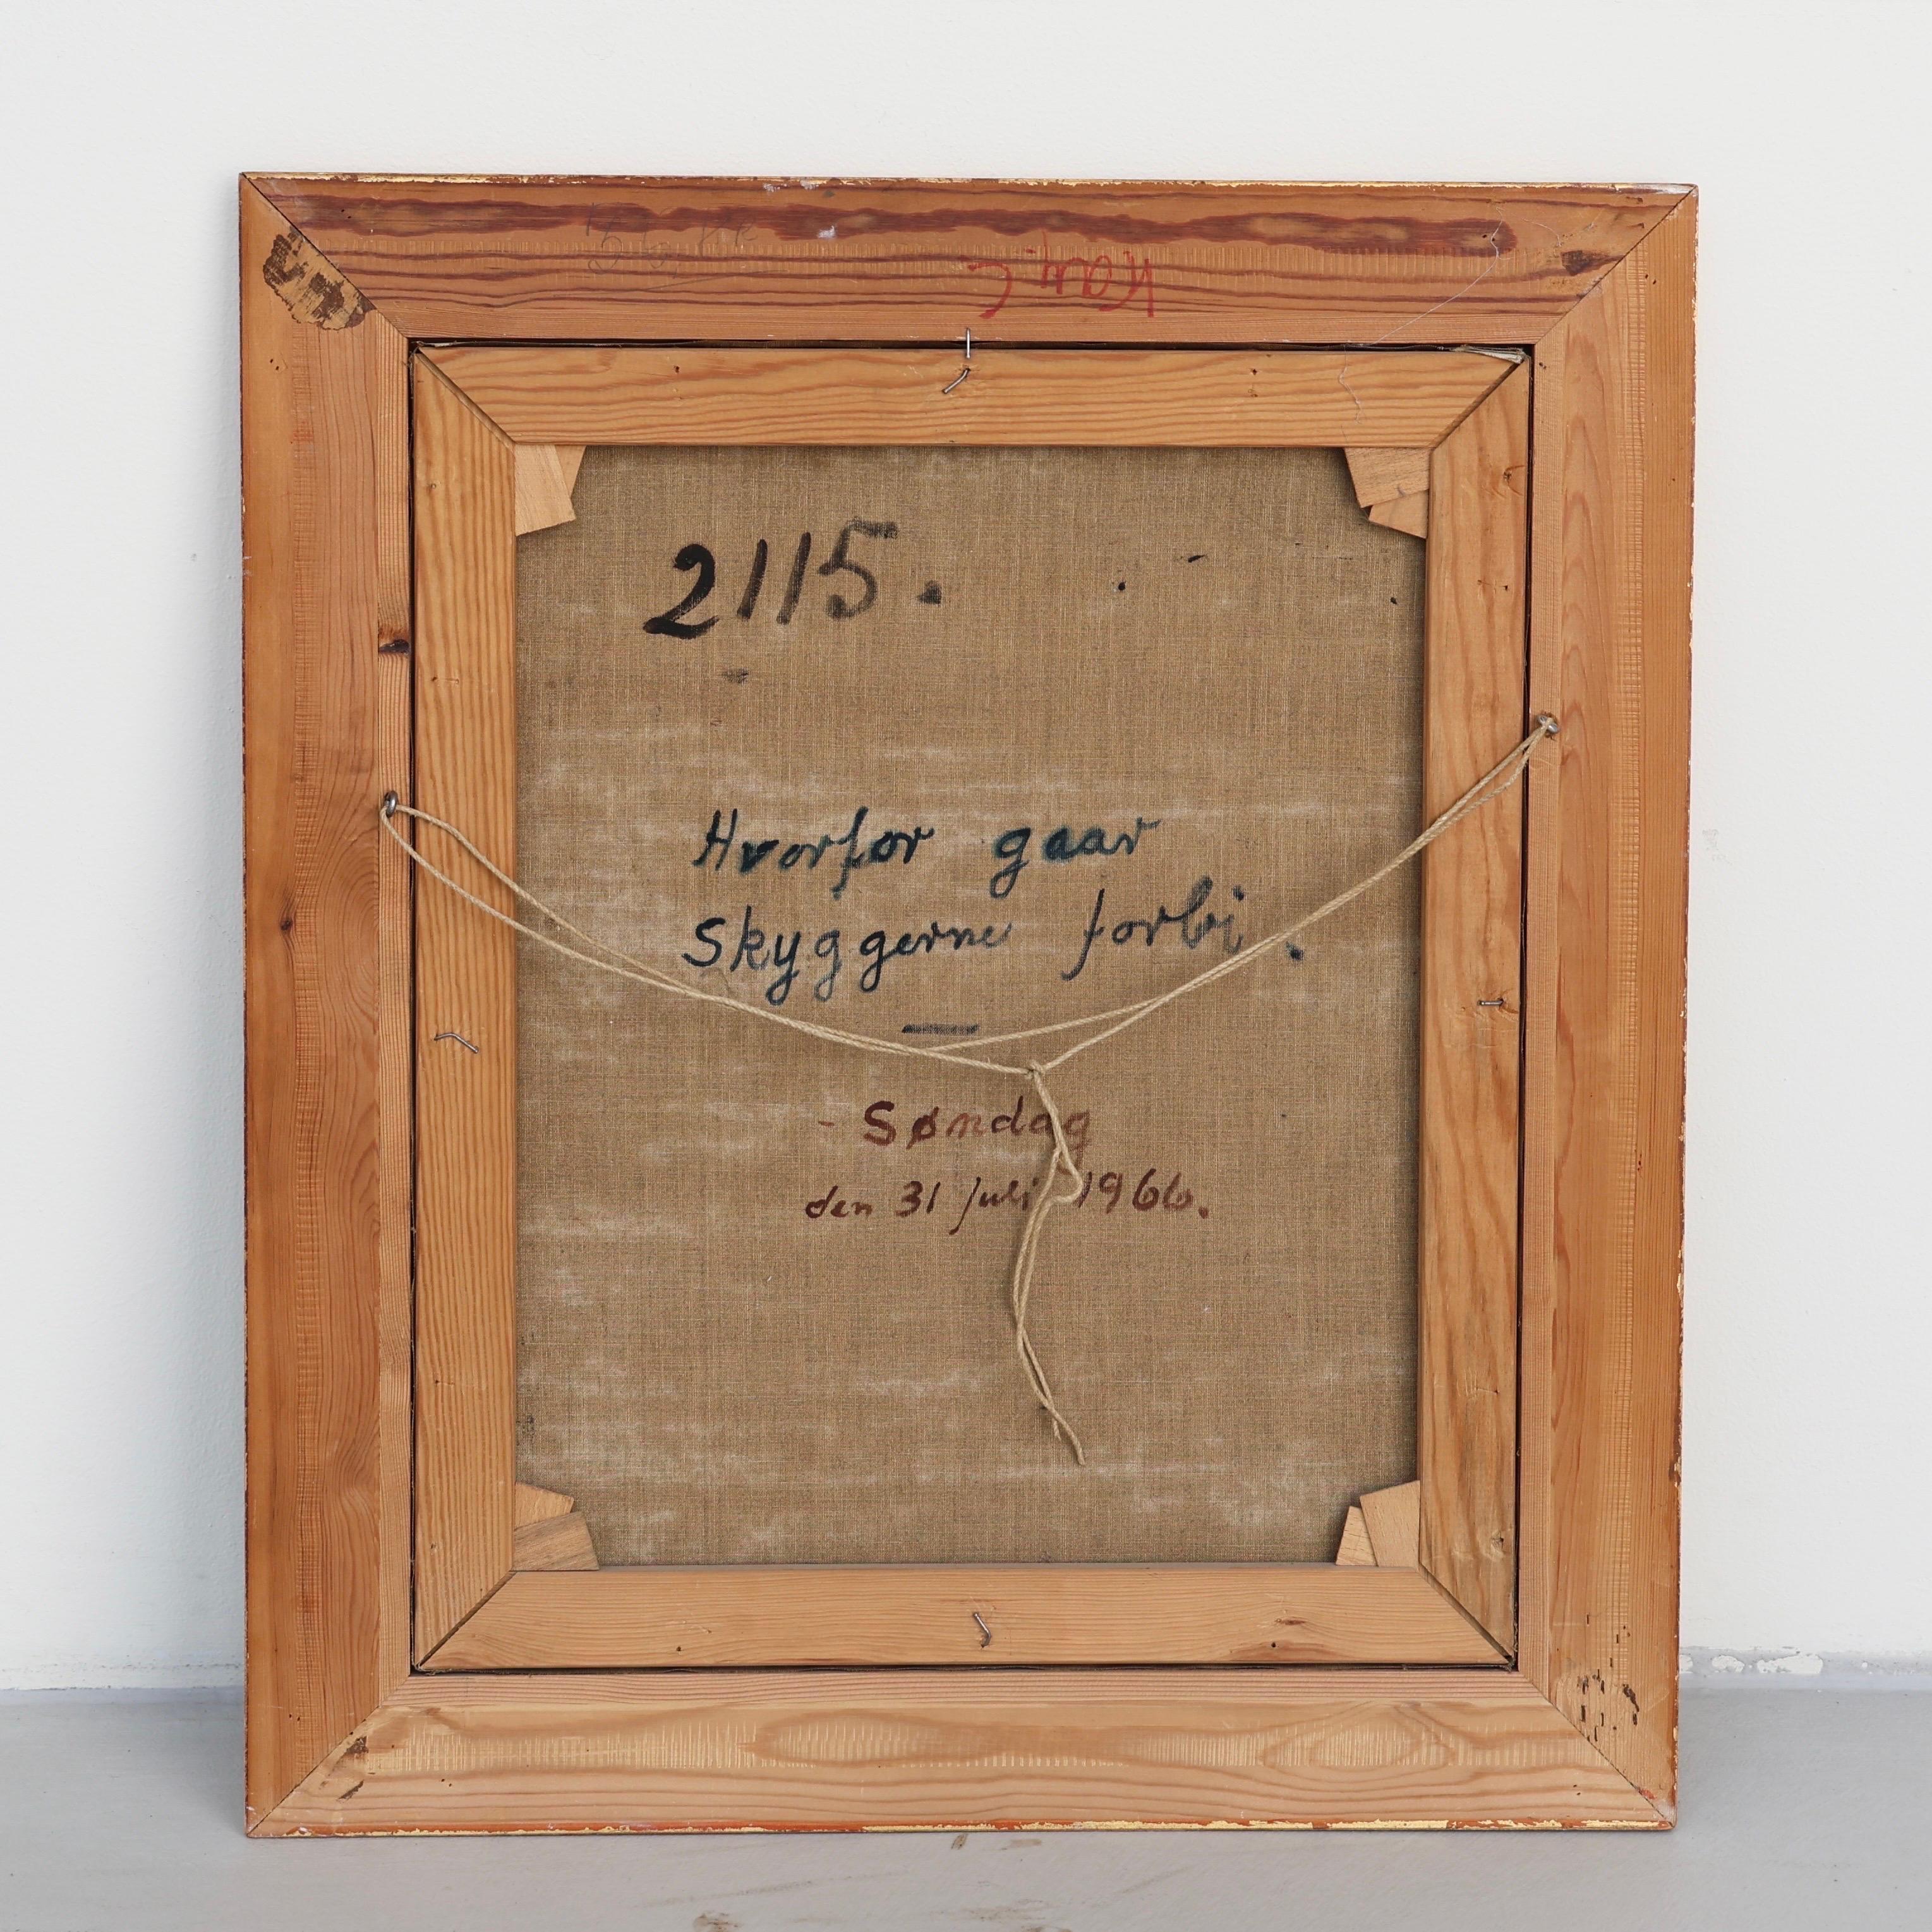 2115.
Hvorfor gaar
Skyggerne forbi.
- Søndag
den 31 juli 1966.